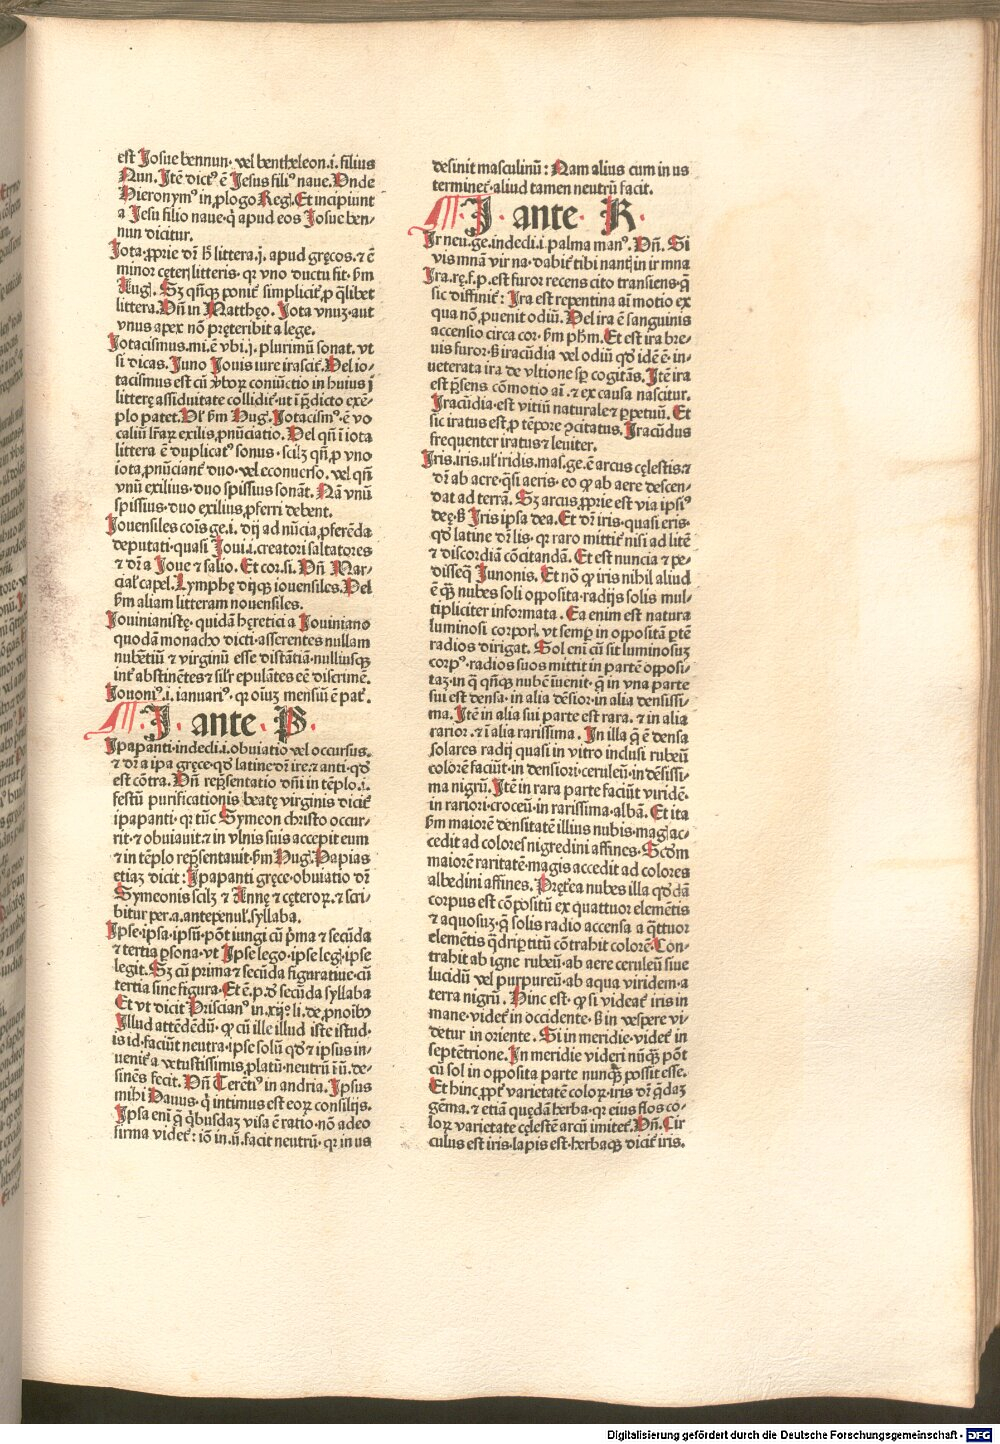 est Josue bennun· vel bentheleon.i. filius
Nun. Itē dictꝰ ē Jesus filiꝰ naue. Unde
Hieronymꝰ in ꝓlogo Regꝭ. Et incipiunt
a Jesu filio naue· q̇ apud eos Josue ben-
nun dicitur.
Jota· ꝓprie dr̄ h̓ littera.j. apud gręcos. ⁊ ē
minor ceteriꝭ litteris· qꝛ vno ductu fit· ẜm
Augꝭ. Sꝫ qn̄qꝫ ponit̃ simplicit̃ ꝓ q̈libet
littera. Un̄ in Matthęo. Jota vnuꝫ· aut
vnus apex nō pręteribit a lege.
Jotacismus. mi. ē vbi .j. plurimū sonat. vt
si dicas. Juno Jouis iure irascit̃. Uel io-
tacismus est cū ꝟboꝝ coniūctio in huius j̄
litterę assiduitate collidit̃· ut ī p̄dicto exē-
plo patet. Ul̓ ẜm Hug. Jotacismꝰ· ē vo
caliū lr̄aꝝ exilis ꝓnūciatio. Uel qn̄ ī iota
littera ē duplicatꝰ sonus· scilꝫ qn̄ ꝓ vno
iota ꝓnūciant̃ duo· vel econuerso. vel qn̄
vnū exilius· duo spissius sonāt. Nā vnū
spissius· duo exilius ꝓferri debent.
Jouensiles cōis ge.i. dij ad nūcia ꝓferēda
deputati· quasi Joui.i. creatori saltatores
⁊ dr̄ a Joue ⁊ salio. Et cor.si. Un̄ Mar-
cial̓ capel. Lymphę dijqꝫ iouensiles. Uel
ẜm aliam litteram nouensiles.
Jouinianistę· quidā hęretici a Jouiniano
quodā monacho dicti· asserentes nullam
nubētiū ⁊ virginū esse distātiā· nulliusqꝫ
int̃ abstinētes ⁊ sil̓r epulātes eē discrimē.
Jouoniꝰ.i. ianuariꝰ· qꝛ oīuꝫ mensiū ē pat̃.
J· ante· P·
Ipapanti· indecli.i. obuiatio vel occursus.
⁊ dr̄ a ipa gręce· qḋ latine dr̄ ire· ⁊ anti· qḋ
est cōtra. Un̄ repr̄sentatio dn̄i in tēplo .i.
festū purificationis beatę virginis dicit̃
ipapanti· qꝛ tūc Symeon christo occur-
rit· ⁊ obuiauit· ⁊ in vlnis suis accepit eum
⁊ in tēplo repr̄sentauit· ẜm Hugꝭ. Papias
etiaꝫ dicit: Ipapanti gręce· obuiatio dr̄
Symeonis scilꝫ ⁊ Annę ⁊ cęteroꝝ. ⁊ scri-
bitur per .a. antepenul̓. syllaba.
Ipse· ipsa· ipsū· pōt iungi cū p̓ma ⁊ secūda
⁊ tertia ꝑsona· vt Ipse lego· ipse legꝭ· ipse
legit. Sꝫ cū prima ⁊ secūda figuratiue· cū
tertia sine figura· Et ē .p. ḋ secūda syllaba
Et vt dicit Priscianꝰ in .xijͦ. li. de ꝓnoībꝰ
Illud attēdēdū· qꝛ cū ille illud iste istud·
is id· faciūt neutra· ipse solū qḋ ⁊ ipsus in-
uenit̃ a vetustissimis ꝓlatū· neutrū ī ū. de-
sinēs fecit. Un̄ Terētiꝰ in andria. Ipsus
mihi Dauus· q̇ intimus est eoꝝ consilijs.
Ipsa eni̅ q̄ q̇busdaꝫ visa ē ratio· nō adeo
firma videt̃: iō in .ū. facit neutrū· qꝛ in us
desinit masculinū: Nam alius cum in us
terminet̃· aliud tamen neutrū facit.
J· ante· R·
Ir neu. ge. indecli.i. palma manꝰ. Un̄. Si
vis mnā vir na· dabit̃ tibi nantꝭ in ir mna
Ira. rę. f. p. est furor recens cito transiens· q̄
sic diffinit̃: Ira est repentina ai̅ motio ex
qua nō ꝓuenit odiū. Uel ira ē sanguinis
accensio circa cor· ẜm ph̓m. Et est ira bre-
uis furor· ẞ iracūdia vel odiū qḋ idē ē· in-
ueterata ira de vltione sp̄ cogitās. Itē ira
est p̄sens cōmotio ai̅. ⁊ ex causa nascitur.
Iracūdia· est vitiū naturale ⁊ ꝑpetuū. Et
sic iratus est ꝓ tēpore ꝯcitatus. Iracūdus
frequenter iratus ⁊ leuiter.
Iris. iris. ul̓ iridis. mas. ge. ē arcus cęlestis. ⁊
dr̄ ab aere· q̈si aeris· eo qꝙ ab aere descen-
dat ad terrā. Sꝫ arcus ꝓprie est via ipsiꝰ
deę· ẞ Iris ipsa dea. Et dr̄ iris· quasi eris·
qḋ latine dr̄ lis· qꝛ raro mittit̃ nisi ad litē
⁊ discordiā cōcitandā. Et est nuncia ⁊ pe-
disseq̄ Junonis. Et nō qꝙ iris nihil aliud
ē q̄ꝫ nubes soli opposita· radijs solis mul-
tipliciter informata. Ea enim est natura
luminosi corporꝭ. vt semꝑ in oppositā ꝑtē
radios dirigat. Sol eni̅ cū sit luminosuꝫ
corpꝰ· radios suos mittit in partē opposi-
taꝫ· in q̄ qn̄qꝫ nubē īuenit· q̄ in vna parte
sui est densa· in alia dēsior· in alia densissi-
ma. Itē in alia sui parte est rara. ⁊ in alia
rarior. ⁊ ī alia rarissima. In illa q̄ ē densa
solares radij quasi in vitro inclusi rubeū
colorē faciūt· in densiori· ceruleū· in dēsissi-
ma nigrū. Itē in rara parte faciūt viridē·
in rariori· croceū· in rarissima· albā. Et ita
ẜm maiorē densitatē illius nubis· magꝭ ac-
cedit ad colores nigredini affines. Scd̓m
maiorē raritatē· magis accedit ad colores
albedini affines. Pręt̃ea nubes illa qḋdā
corpus est cōpositū ex quattuor elemētis
⁊ aquosuꝫ· q̄ solis radio accensa a q̈ttuor
elemētis q̈driꝑtitū cōtrahit colorē. Con-
trahit ab igne rubeū· ab aere ceruleū siue
lucidū vel purpureū· ab aqua viridem· a
terra nigrū. Hinc est· qꝙ si videat̃ iris in
mane· videt̃ in occidente· ẞ in vespere vi-
detur in oriente. Si in meridie· videt̃ in
septētrione. In meridie videri nūq̄ꝫ pōt
cū sol in opposita parte nunq̄ꝫ possit esse.
Et hinc ꝓpt̃ varietatē coloꝝ· iris dr̄ q̄daꝫ
gēma. ⁊ etiā quędā herba· qꝛ eius flos co-
loꝝ varietate cęlestē arcū imitet̃. Un̄. Cir
culus est iris· lapis est· herbaqꝫ dicit̃ iris.
Digitalisierung gefördert durch die Deutsche Forschungsgemeinschaft · DFG